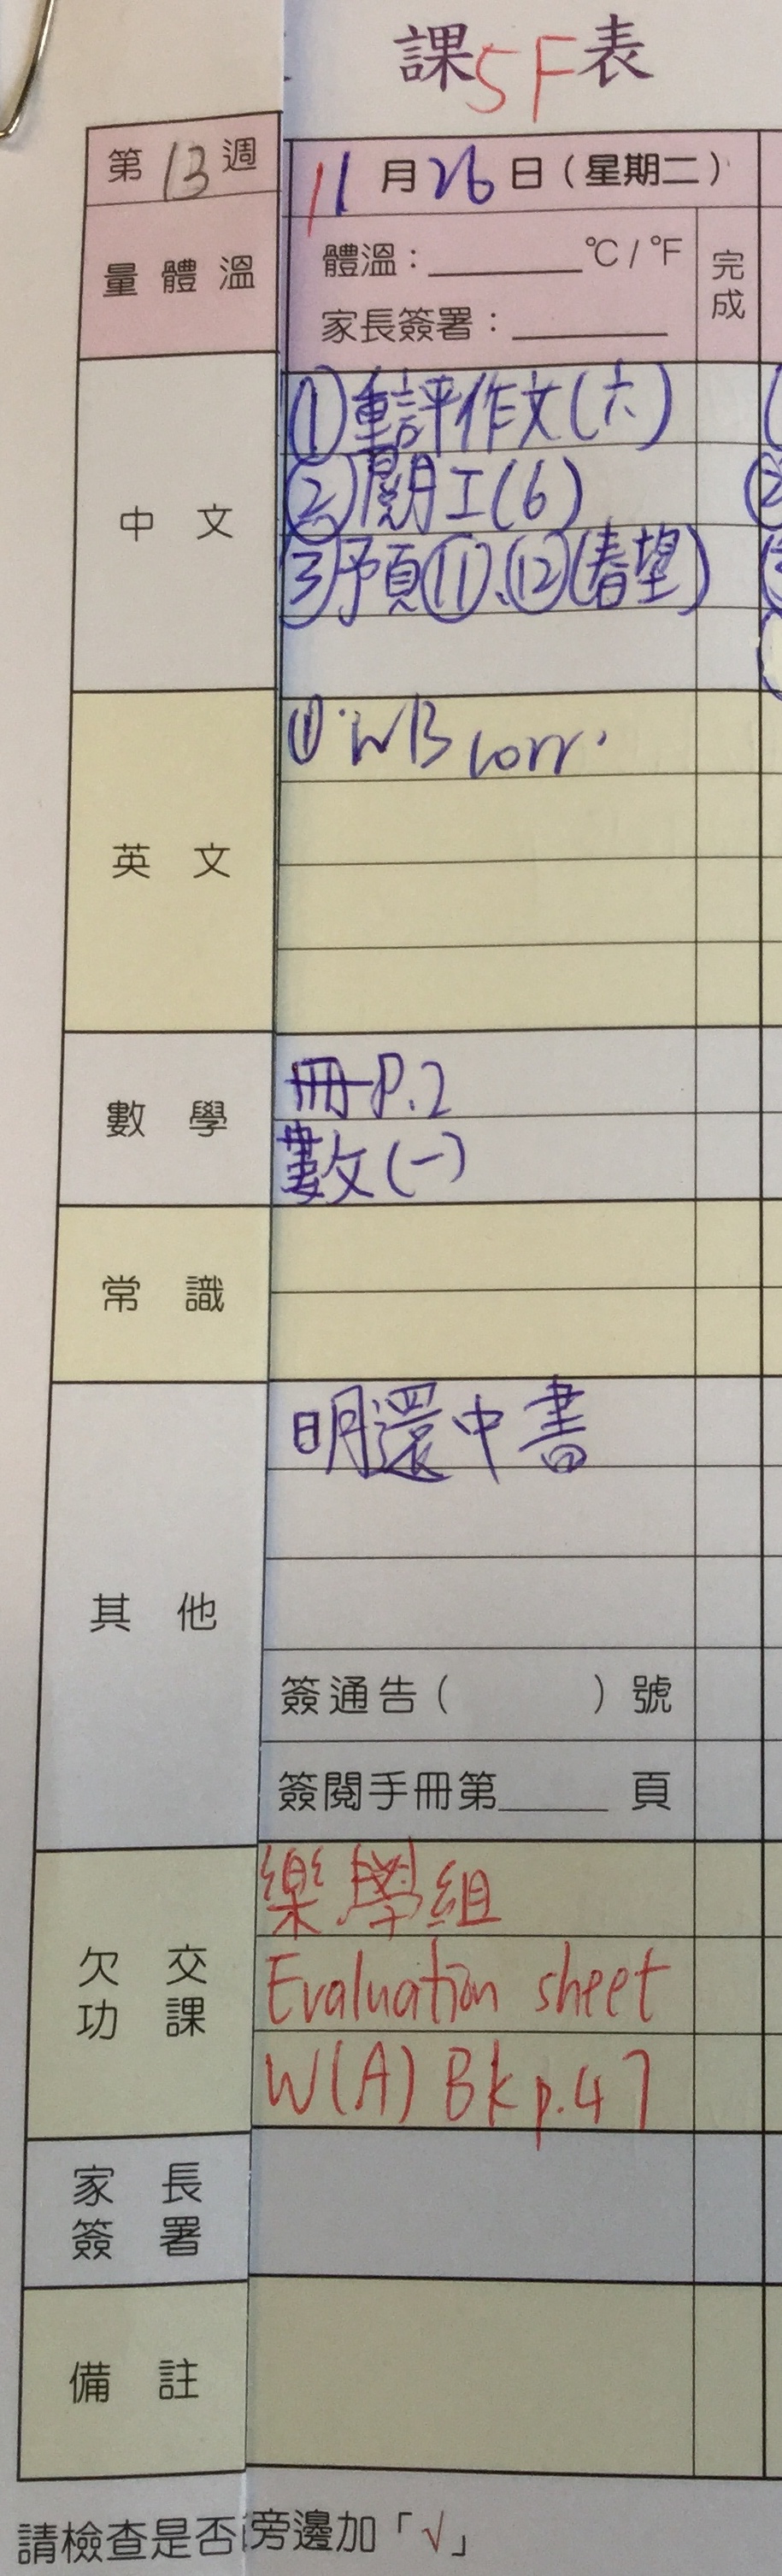 課5F表
第13週
11月26日(星期二)
量體溫
體溫：______°C / °F
完成
家長簽署：______
中文
①重評作文(六)
②閱工(6)
③予頁⑪、⑫(春望)
英文
①WB corr.
數學
冊P.2
數文(一)
常識
其他
明還中書
簽通告(　　)號
簽閱手冊第____頁
欠交功課
樂學組
Evaluation sheet
W(A) Bk p.47
家長簽署
備註
請檢查是否
旁邊加「√」